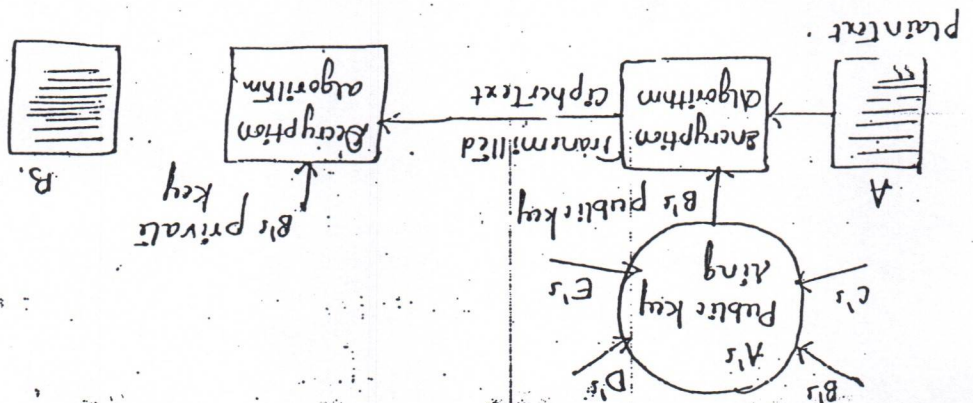 B's
D's
A's
Public key
ring
C's
E's
B's public key
B's private
key
A
encryption
algorithm
Transmitted
CipherText
Decryption
algorithm
B.
plainText